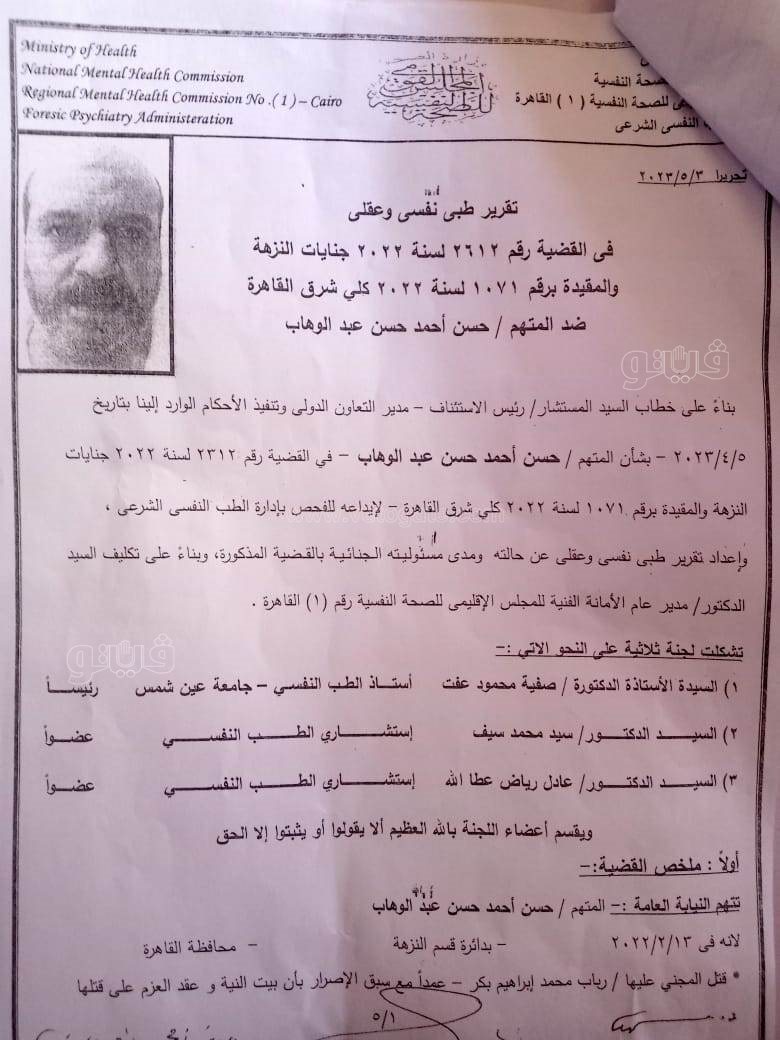 Ministry of Health
National Mental Health Commission
Regional Mental Health Commission No .( 1 ) – Cairo
Foresic Psychiatry Administeration
صحة النفسية
ى للصحة النفسية ( ١ ) القاهرة
النفسى الشرعى
تحريرا ٢٠٢٣/٥/٣
تقرير طبى نفسى وعقلى
فى القضية رقم ٢٦١٢ لسنة ٢٠٢٢ جنايات النزهة
والمقيدة برقم ١٠٧١ لسنة ٢٠٢٢ كلي شرق القاهرة
ضد المتهم / حسن أحمد حسن عبد الوهاب
ڤيتو
بناءً على خطاب السيد المستشار/ رئيس الاستئناف – مدير التعاون الدولى وتنفيذ الأحكام الوارد إلينا بتاريخ
٢٠٢٣/٤/٥ – بشأن المتهم / حسن أحمد حسن عبد الوهاب – في القضية رقم ٢٣١٢ لسنة ٢٠٢٢ جنايات
النزهة والمقيدة برقم ١٠٧١ لسنة ٢٠٢٢ كلي شرق القاهرة – لإيداعه للفحص بإدارة الطب النفسى الشرعى ،
وإعداد تقرير طبى نفسى وعقلى عن حالته ومدى مسئوليته الجنائية بالقضية المذكورة، وبناءً على تكليف السيد
الدكتور/ مدير عام الأمانة الفنية للمجلس الإقليمى للصحة النفسية رقم (١) القاهرة .
تشكلت لجنة ثلاثية على النحو الاتي :–
ڤيتو
١) السيدة الأستاذة الدكتورة / صفية محمود عفت أستاذ الطب النفسي – جامعة عين شمس رئيساً
٢) السيد الدكتور/ سيد محمد سيف إستشاري الطب النفسي عضواً
٣) السيد الدكتور/ عادل رياض عطا الله إستشاري الطب النفسي عضواً
ويقسم أعضاء اللجنة بالله العظيم ألا يقولوا أو يثبتوا إلا الحق
أولاً : ملخص القضية:–
تتهم النيابة العامة :– المتهم / حسن أحمد حسن عبد الوهاب
لانه فى ٢٠٢٢/٢/١٣ – بدائرة قسم النزهة – محافظة القاهرة
* قتل المجني عليها / رباب محمد إبراهيم بكر – عمداً مع سبق الإصرار بأن بيت النية و عقد العزم على قتلها
٥/١